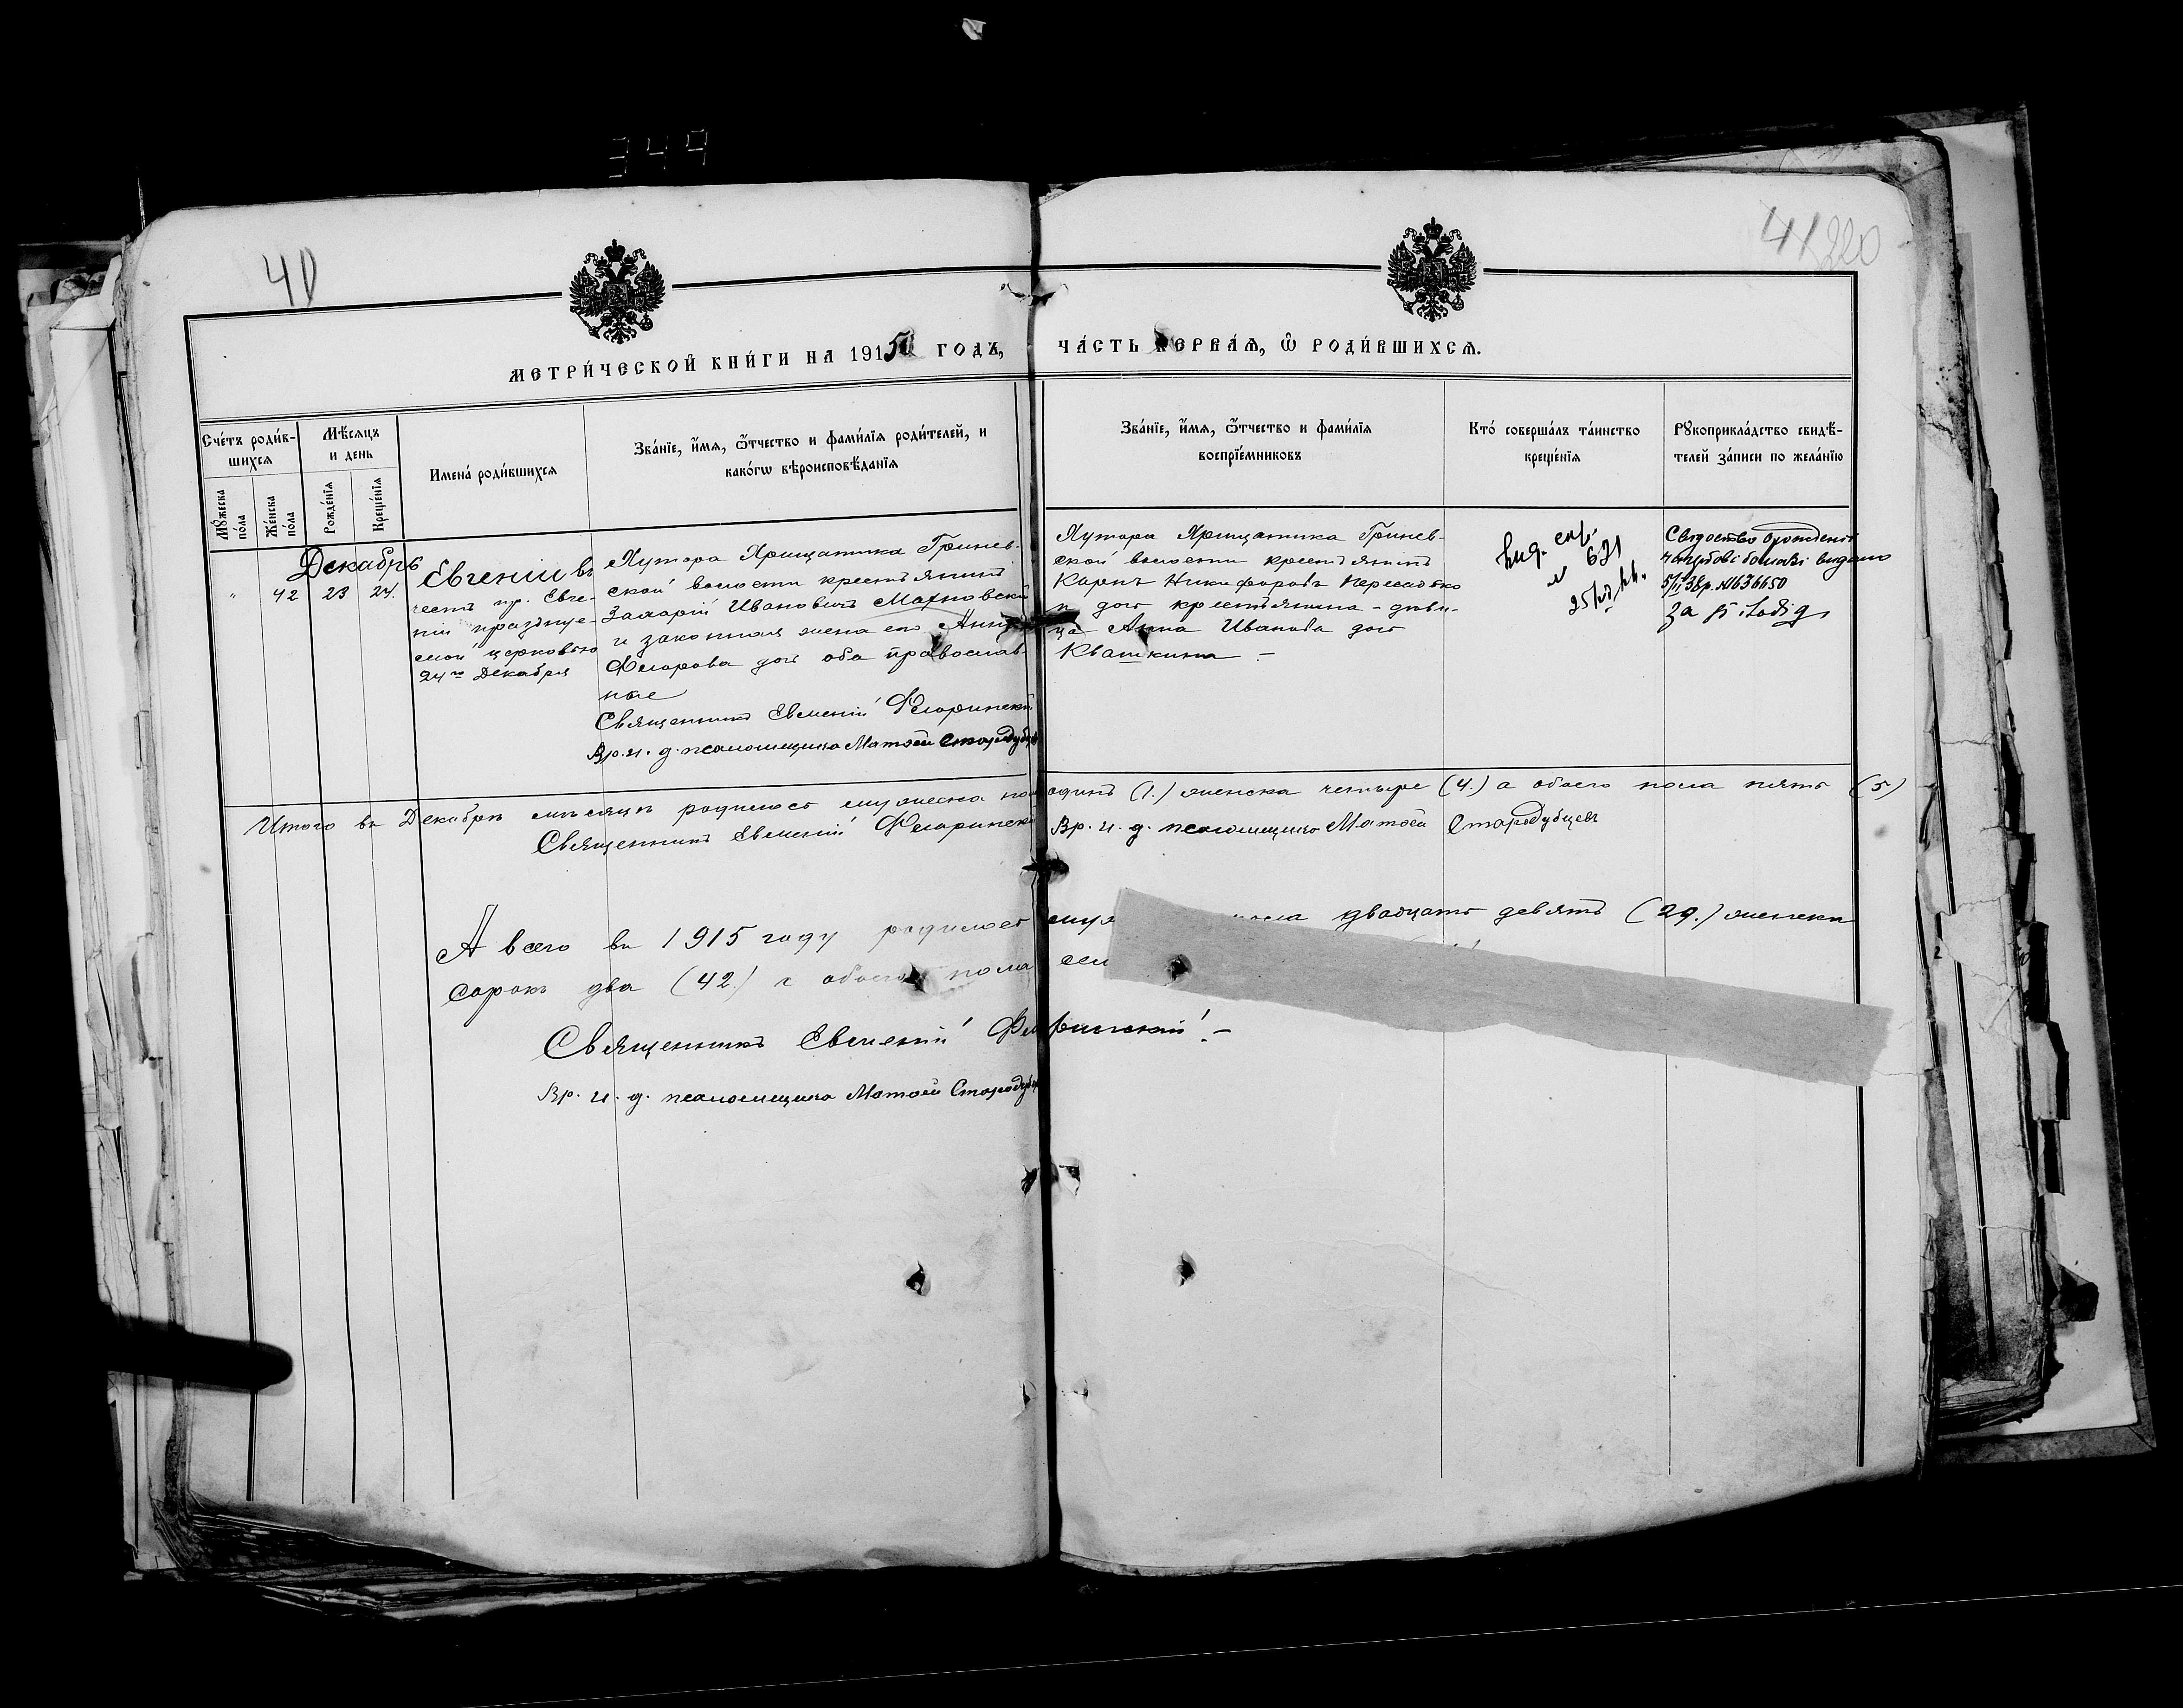 344
40
41 220
МЕТРИ́ЧЕСКОЙ КНИ́ГИ НА 1915 ГОДЪ,
ЧА́СТЬ ПЕРВА́Я, Ѡ РОДИ́ВШИХСЯ.
Сче́тъ роди́в-
шихся
Мѣ́сяцъ
и день
Имена́ роди́вшихся
Зва́нїе, и́мя, ѻ́тчество и фами́лїя роди́телей, и
како́гѡ вѣроисповѣ́данїя
Мꙋ́жеска
по́ла
Же́нска
по́ла
Рожде́нїя
Креще́нїя
Зва́нїе, и́мя, ѻ́тчество и фами́лїя
воспрїе́мниковъ
Кто́ соверша́лъ та́инство
креще́нїя
Рꙋкоприкла́дство свидѣ́-
телей за́писи по жела́нїю
Декабрь
" 42 23 24.
Евгенія въ
честь пр. Евге-
ніи празднуе-
мой церковью
24го Декабря
Хутора Хрищатика Гринев-
ской волости крестьянинъ
Захарій Ивановичъ Махновскій
и законная жена его Анна
Федорова дочь оба православ-
ные
Священникъ Евменій
Вр. и. д. псаломщика Матѳей Стародубцев
Хутора Хрищатика Гринев-
ской волости крестьянинъ
Карпъ Никифоровъ
и дочь крестьянина - дѣви-
ца Анна Иванова дочь
Квашкина -
Вид.
№ 621
Свідоцтво
видано
5/II 38р. №636650
за
Итого въ Декабрѣ мѣсяцѣ родилось мужеска пола одинъ (1.) женска четыре (4.) а обоего пола пять (5)
Священникъ Евменій
Вр. и. д. псаломщика Матѳей Стародубцевъ
А всего въ 1915 году родилось двадцать девять (29.) женска
сорокъ два (42.) а обоего пола
Священникъ Евменій
Вр. и. д. псаломщика Матѳей Стародубцев